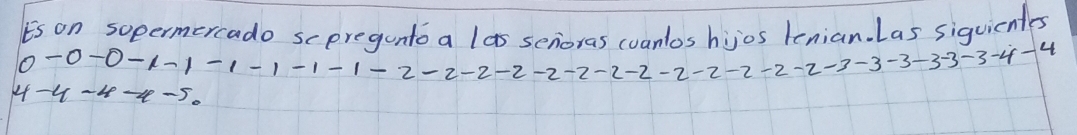 Es on sopermercado se pregunto a las señoras cuantos hijos tenian. Las siguientes
0-0-0-1-1-1-1-1-1-2-2-2-2-2-2-2-2-2-2-2-2-2-3-3-3-3-3-3-4-4
4-4-4-4-5.